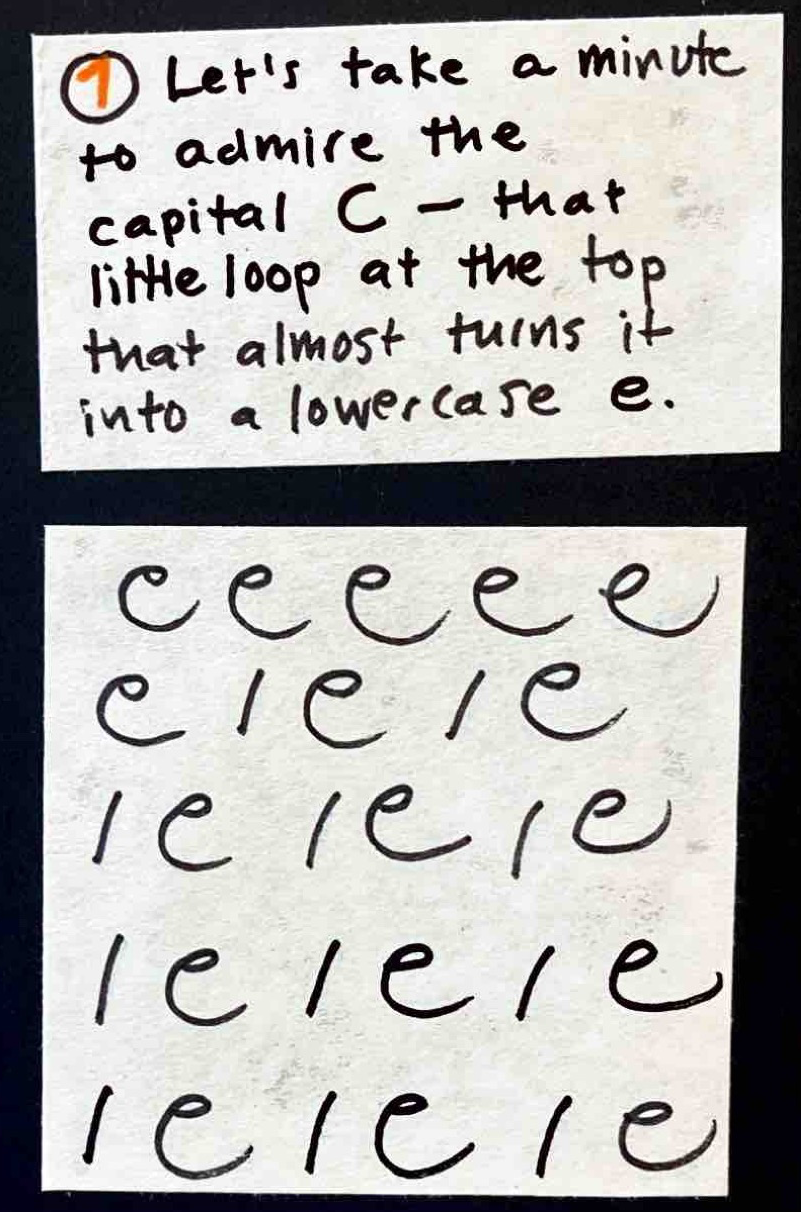 1 Let's take a minute
to admire the
capital C – that
little loop at the top
that almost turns it
into a lowercase e.
C C C C C
C / C / C
/ C / C / C
/ C / C / C
/ C / C / C